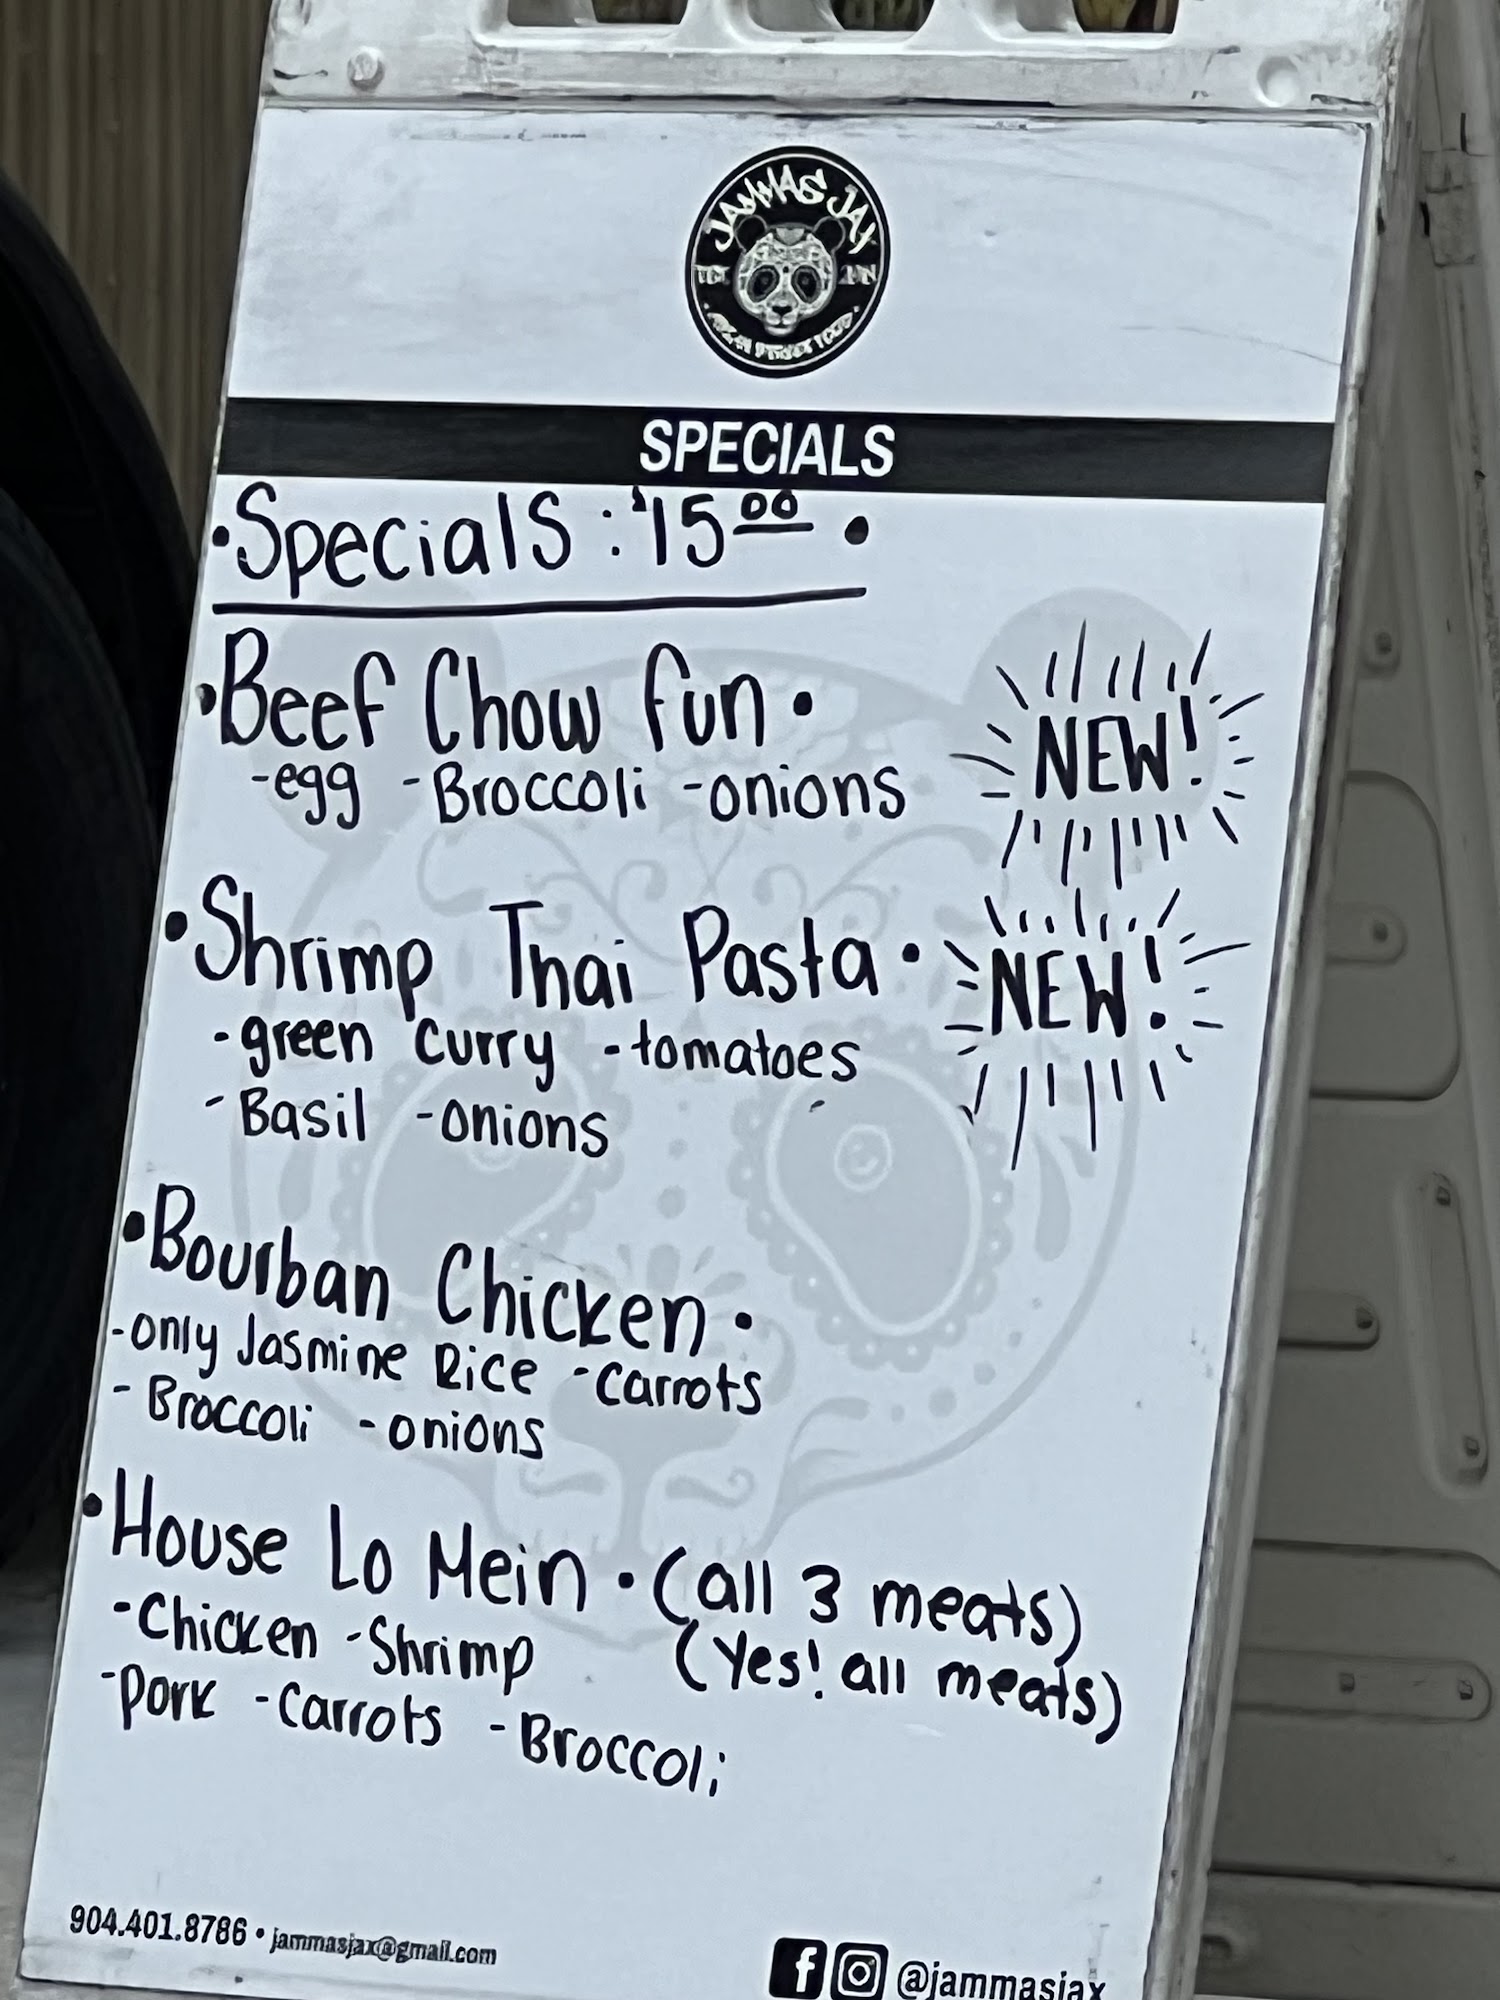 JAMMAS JAX
ASIAN STREET FOOD
SPECIALS
•Specials: $15.00 •
•Beef Chow fun•
-egg -Broccoli -onions
NEW!
•Shrimp Thai Pasta•
NEW!
-green curry -tomatoes
-Basil -onions
•Bourban Chicken•
-only Jasmine Rice -carrots
-Broccoli -onions
•House Lo Mein• (all 3 meats)
-Chicken -Shrimp (Yes! all meats)
-Pork -Carrots -Broccoli
904.401.8786 • jammasjax@gmail.com
@jammasjax